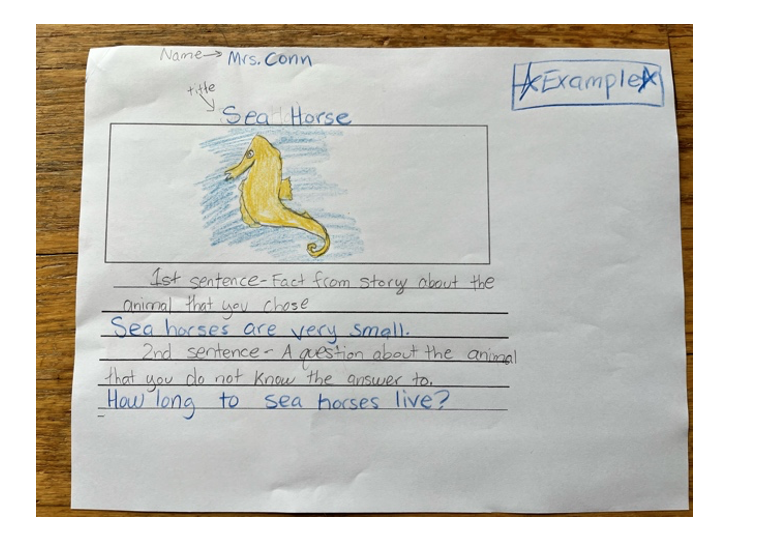 Name→ Mrs. Conn
★Example★
title
Sea Horse
1st sentence-Fact from story about the
animal that you chose
Sea horses are very small.
2nd sentence- A question about the animal
that you do not know the answer to.
How long to sea horses live?